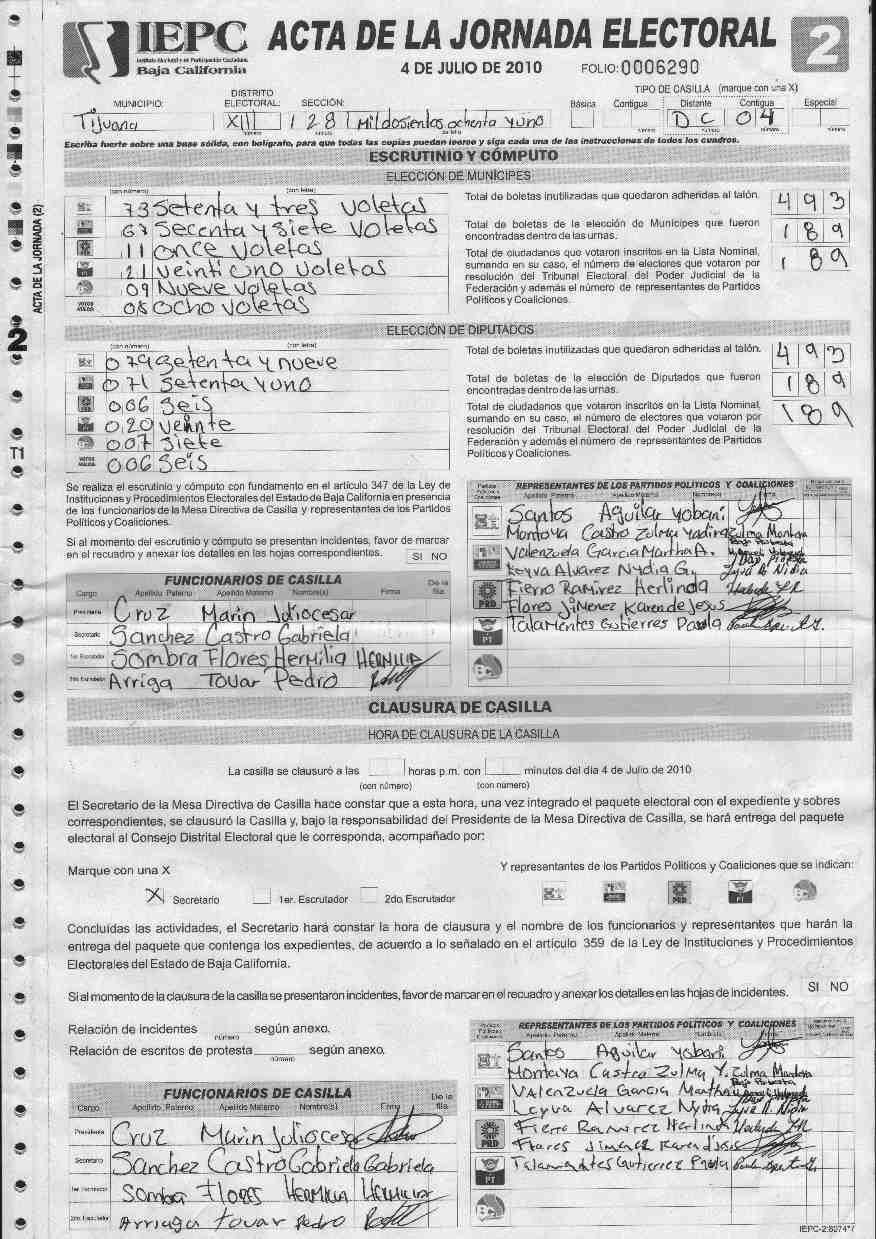 IEPC
Instituto Electoral y de Participación Ciudadana
Baja California
ACTA DE LA JORNADA ELECTORAL
2
4 DE JULIO DE 2010 FOLIO: 0006290
TIPO DE CASILLA (marque con una X)
MUNICIPIO: DISTRITO ELECTORAL: SECCIÓN: Básica Contigua Distante Contigua Especial
Tijuana XIII 1281 Mildosientos ochenta yuno DC 04
número número con letra número número número número
Escriba fuerte sobre una base sólida, con bolígrafo, para que todas las copias puedan leerse y siga cada una de las instrucciones de todos los cuadros.
ESCRUTINIO Y CÓMPUTO
ELECCIÓN DE MUNÍCIPES
(con número) (con letra)
73 Setenta y tres voletas
67 Secenta y Siete Voletas
11 once Voletas
21 veinti uno voletas
09 Nueve voletas
VOTOS NULOS 08 Ocho voletas
Total de boletas inutilizadas que quedaron adheridas al talón. 493
Total de boletas de la elección de Munícipes que fueron encontradas dentro de las urnas. 189
Total de ciudadanos que votaron inscritos en la Lista Nominal, sumando en su caso, el número de electores que votaron por resolución del Tribunal Electoral del Poder Judicial de la Federación y además el número de representantes de Partidos Políticos y Coaliciones. 189
ACTA DE LA JORNADA (2)
2
T1
ELECCIÓN DE DIPUTADOS
(con número) (con letra)
079 Setenta y nueve
071 Setenta Yuno
006 Seis
020 veinte
007 Siete
VOTOS NULOS 006 Seis
Total de boletas inutilizadas que quedaron adheridas al talón. 493
Total de boletas de la elección de Diputados que fueron encontradas dentro de las urnas. 189
Total de ciudadanos que votaron inscritos en la Lista Nominal, sumando en su caso, el número de electores que votaron por resolución del Tribunal Electoral del Poder Judicial de la Federación y además el número de representantes de Partidos Políticos y Coaliciones. 189
Se realiza el escrutinio y cómputo con fundamento en el artículo 347 de la Ley de
Instituciones y Procedimientos Electorales del Estado de Baja California en presencia
de los funcionarios de la Mesa Directiva de Casilla y representantes de los Partidos
Políticos y Coaliciones.
Si al momento del escrutinio y cómputo se presentan incidentes, favor de marcar
en el recuadro y anexar los detalles en las hojas correspondientes. SI NO
FUNCIONARIOS DE CASILLA
Cargo Apellido Paterno Apellido Materno Nombre(s) Firma De la fila
Presidente Cruz Marin Juliocesar
Secretario Sanchez Castro Gabriela
1er. Escrutador Sombra Flores Hermilia HERMILIA
2do. Escrutador Arriga Tovar Pedro
REPRESENTANTES DE LOS PARTIDOS POLÍTICOS Y COALICIONES
Partidos Políticos o Coaliciones Apellido Paterno Apellido Materno Nombre(s) Firma
Santos Aguilar Yobani
Montoya Castro Zulma Yadira Zulma Montoya
Bajo Protesta
Valenzuela Garcia Martha A.
Leyva Alvarez Nydia G. Leyva A. Nidia
PRD Fierro Ramirez Herlinda
Flores Jimenez Karen de Jesus
PT Talamentes Gutierres Paola
CLAUSURA DE CASILLA
HORA DE CLAUSURA DE LA CASILLA
La casilla se clausuró a las horas p.m. con minutos del día 4 de Julio de 2010
(con número) (con número)
El Secretario de la Mesa Directiva de Casilla hace constar que a esta hora, una vez integrado el paquete electoral con el expediente y sobres
correspondientes, se clausuró la Casilla y, bajo la responsabilidad del Presidente de la Mesa Directiva de Casilla, se hará entrega del paquete
electoral al Consejo Distrital Electoral que le corresponda, acompañado por:
Marque con una X Y representantes de los Partidos Políticos y Coaliciones que se indican:
X Secretario 1er. Escrutador 2do. Escrutador PRD PT
Concluídas las actividades, el Secretario hará constar la hora de clausura y el nombre de los funcionarios y representantes que harán la
entrega del paquete que contenga los expedientes, de acuerdo a lo señalado en el artículo 359 de la Ley de Instituciones y Procedimientos
Electorales del Estado de Baja California.
Si al momento de la clausura de la casilla se presentaron incidentes, favor de marcar en el recuadro y anexar los detalles en las hojas de incidentes. SI NO
Relación de incidentes según anexo.
número
Relación de escritos de protesta según anexo.
número
FUNCIONARIOS DE CASILLA
Cargo Apellido Paterno Apellido Materno Nombre(s) Firma De la fila
Presidente Cruz Marin Juliocesar
Secretario Sanchez Castro Gabriela Gabriela
1er. Escrutador Sombra FLORES HERMILIA HERMILIA
2do. Escrutador Arriaga tovar Pedro
REPRESENTANTES DE LOS PARTIDOS POLÍTICOS Y COALICIONES
Partidos Políticos o Coaliciones Apellido Paterno Apellido Materno Nombre(s) Firma
Santos Aguilar Yobani
Montoya Castro Zulma Y. Zulma Montoya
Bajo Protesta
Valenzuela Garcia Martha
Leyva Alvarez Nydia Leyva A. Nidia
PRD Fierro Ramirez Herlinda
Flores Jimenez Karen d'Jesis
PT Talamantes Gutierrez Paola
IEPC-2:8074*7